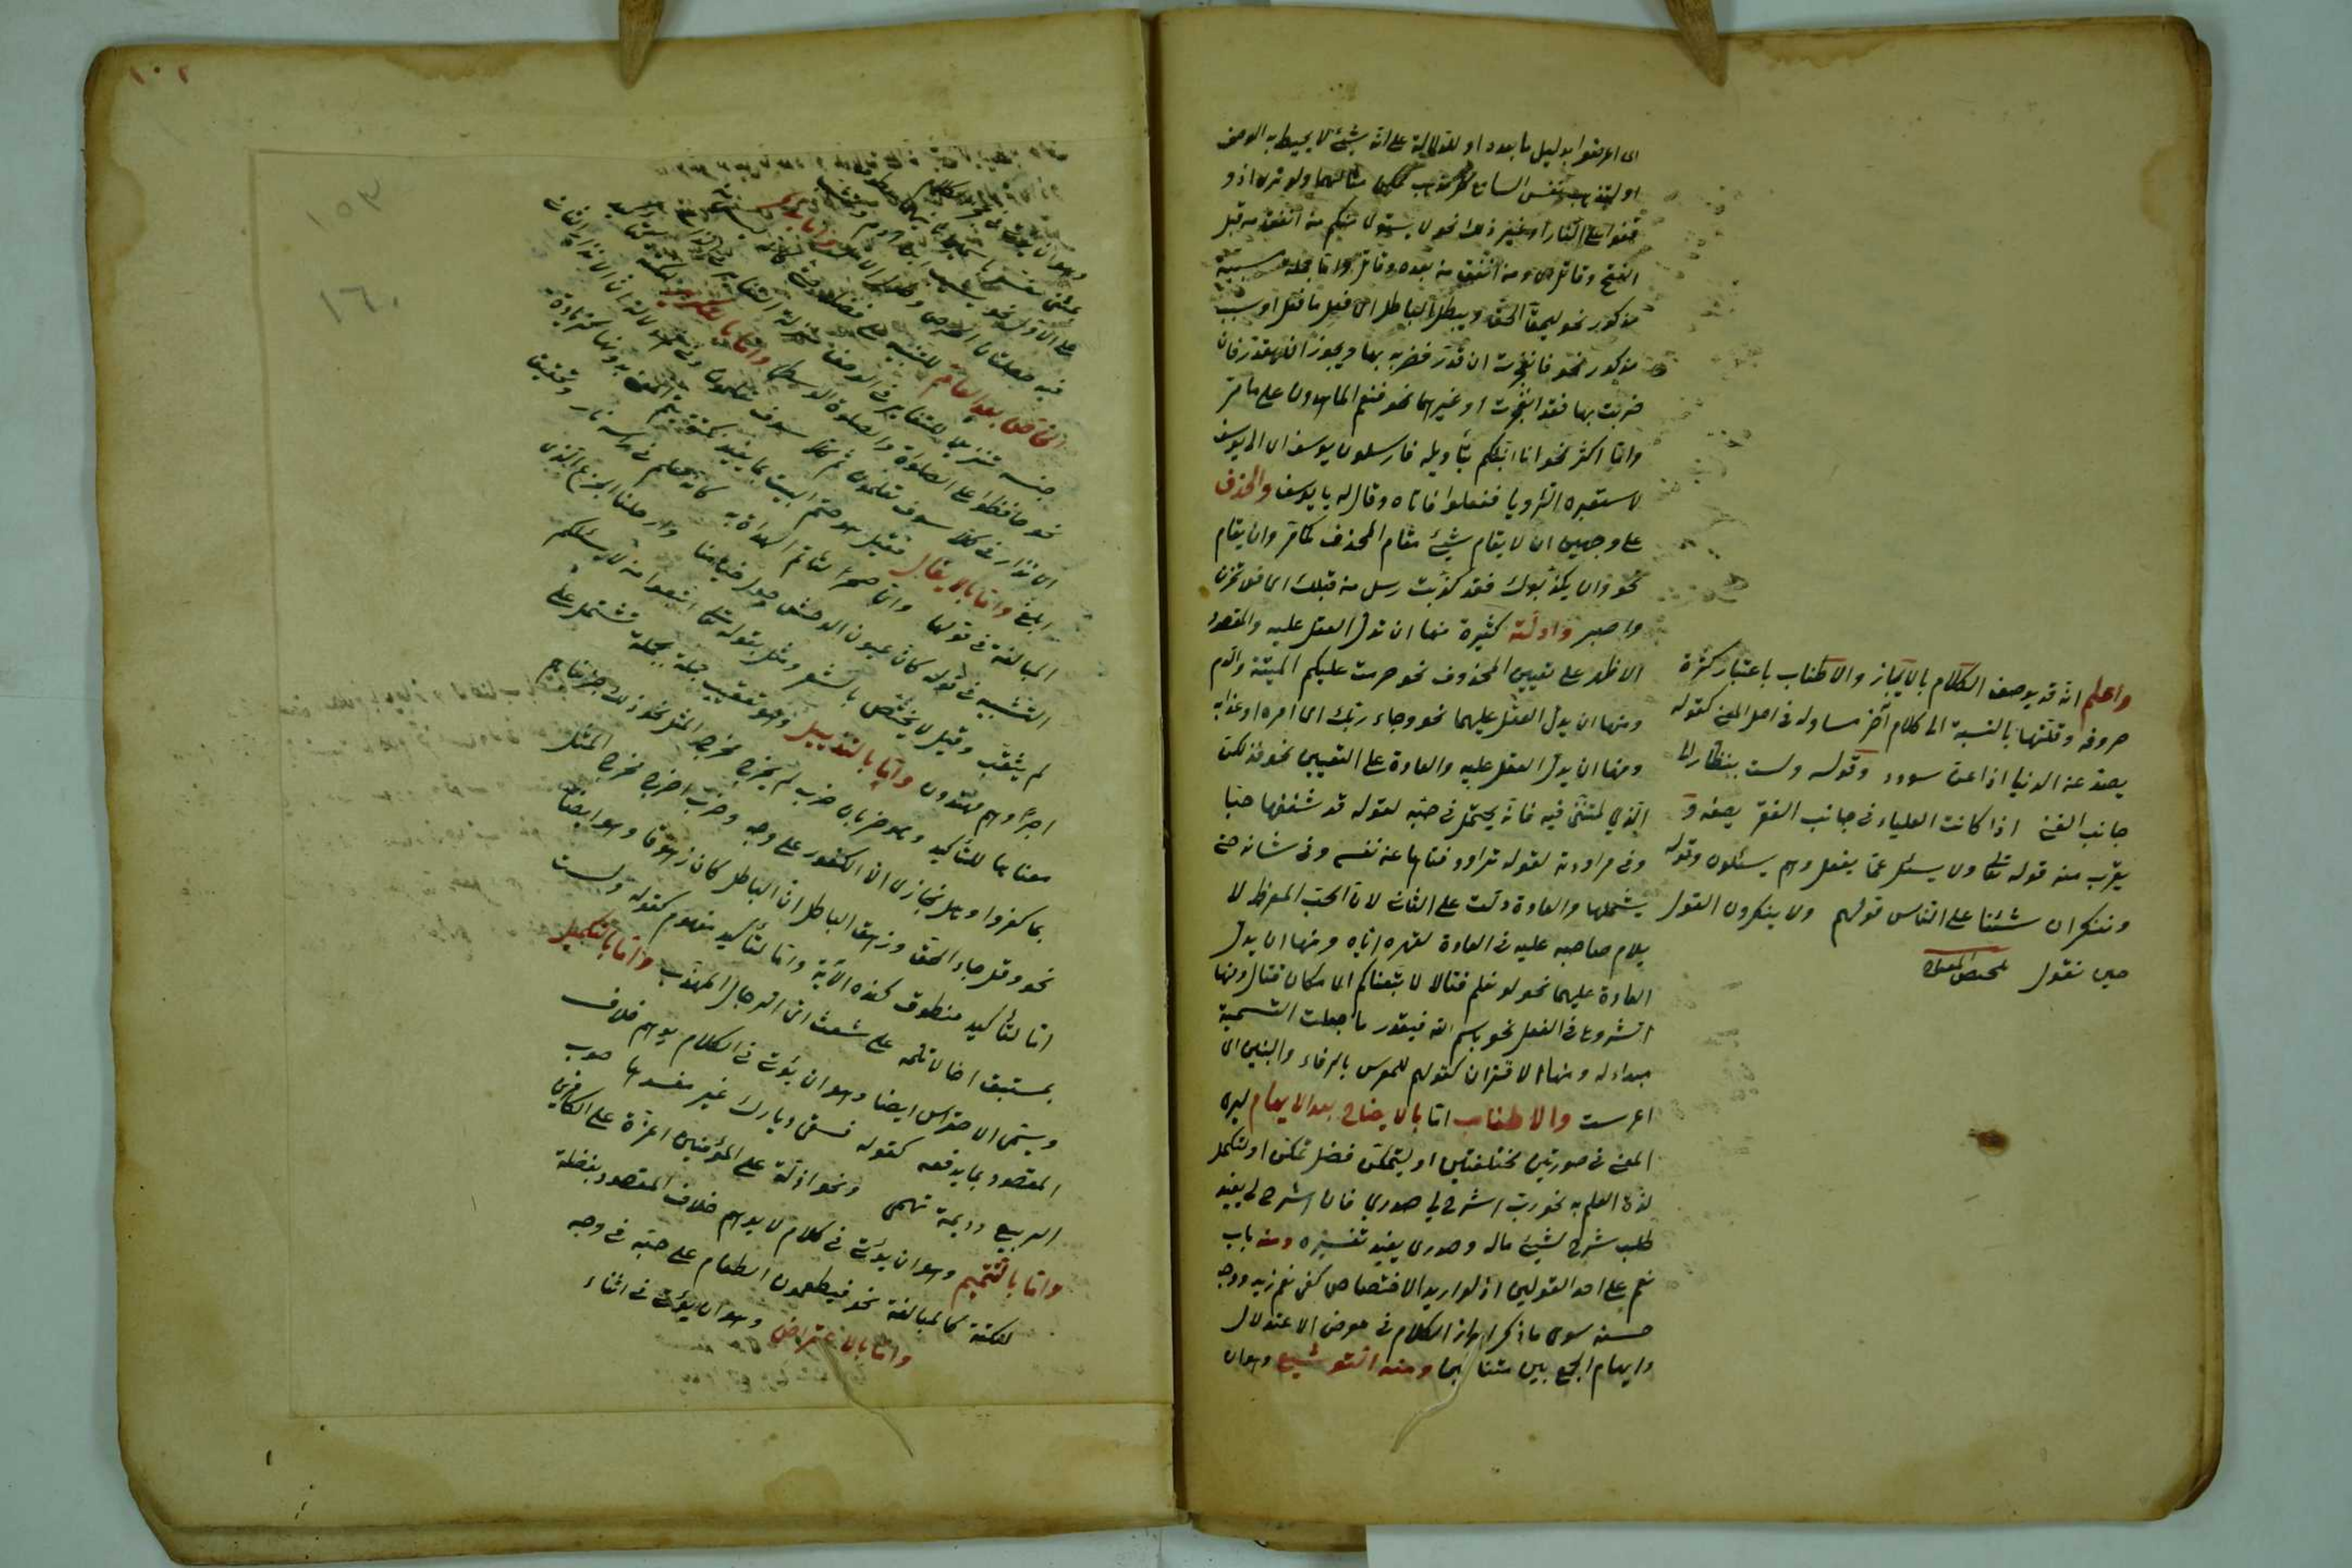 اى اعرضوا بدليل ما بعده او للدلالة على انه شيئ لا يحيط به الوصف
او لتذهب نفس السامع كل مذهب ممكن مثالهما ولو ترى اذ و
قفوا على النار او غير ذلك نحو لا يستوى منكم من انفق من قبل
الفتح وقاتل اى ومن انفق من بعده وقاتل واما جملة مسببة
مذكور نحو ليحق الحق ويبطل الباطل اى فعل ما فعل او سبب
مذكور نحو فانفجرت ان قدر فضربه بها ويجوز ان يقدر فان
ضربت بها فقد انفجرت او غيرهما نحو فنعم الماهدون على ما مر
واما اكثر نحو انا انبئكم بتأويله فارسلون يوسف اى الى يوسف
لاستعبره الرؤيا ففعلوا فاتاه وقال له يا يوسف والحذف
على وجهين ان لا يقام شيئ مقام المحذوف كما مر وان يقام
نحو وان يكذبوك فقد كذبت رسل من قبلك اى فلا تحزن
واصبر وادلته كثيرة منها ان تدل العقل عليه والمقصود
الاظهر على تعيين المحذوف نحو حرمت عليكم الميتة والدم
ومنها ان يدل العقل عليهما نحو وجاء ربك اى امره او عذابه
ومنها ان يدل العقل عليه والعادة على التعيين نحو فذلكن
الذي لمتننى فيه فانه يحتمل فى حبه لقوله قد شغفها حبا
وفى مراودته لقوله تراود فتاها عن نفسه وفى شانه حتى
يشملها والعادة دلت على الثانى لان الحب المفرط لا
يلام صاحبه عليه فى العادة لقهره اياه ومنها ان يدل
العادة عليهما نحو لو نعلم قتالا لاتبعناكم اى مكان قتال ومنها
الشروع فى الفعل نحو باسم الله فيقدر ما جعلت التسمية
مبدا له ومنها الاقتران كقولهم للمعرس بالرفاء والبنين اى
اعرست والاطناب اما بالايضاح بعد الابهام ليرى
المعنى فى صورتين مختلفتين او ليتمكن فضل تمكن او لتكمل
لذة العلم به نحو رب اشرح لي صدري فان اشرح لي يفيد
طلب شرح لشيئ ما له وصدرى يفيد تفسيره ومنه باب
نعم على احد القولين اذ لو اريد الاختصار كفى نعم زيد ووجه
حسنه سوى ما ذكر ابراز الكلام فى معرض الاعتدال
وايهام الجمع بين متنافيين ومنه التوشيع وهو ان
واعلم انه قد يوصف الكلام بالايجاز والاطناب باعتبار كثرة
حروفه وقلتها بالنسبة الى كلام آخر مساو له فى اصل المعنى كقوله
يصد عن الدنيا اذا عن سودد وقوله ولست بنظار الى
جانب الغنى اذا كانت العلياء فى جانب الفقر يصفه و
يقرب منه قوله تعالى ولا يسئل عما يفعل وهم يسئلون وقوله
وننكر ان شئنا على الناس قولهم ولا ينكرون القول
حين نقول
١٠٢
١٥٣
١٦٠
الخاص بعد العام للتنبيه على فضله
نحو حافظوا على الصلوات والصلوة الوسطى واما بالتكرير
واما بالايغال فقيل هو ختم البيت بما يفيد نكتة يتم المعنى بدونها كزيادة
المبالغة فى قولها وان صخرا لتأتم الهداة به كانه علم فى رأسه نار وتحقيق
التشبيه فى قوله كان عيون الوحش حول خبائنا وارحلنا الجزع الذى
لم يثقب وقيل لا يختص بالشعر ومثل بقوله تعالى اتبعوا من لا يسئلكم
اجرا وهم مهتدون واما بالتذييل وهو تعقيب جملة بجملة تشتمل على
معناها للتأكيد وهو ضربان ضرب لم يخرج مخرج المثل نحو ذلك جزيناهم
بما كفروا وهل نجازى الا الكفور على وجه وضرب اخرج مخرج المثل
نحو وقل جاء الحق وزهق الباطل ان الباطل كان زهوقا وهو ايضا
اما لتأكيد منطوق كهذه الآية واما لتأكيد مفهوم كقوله ولست
بمستبق اخا لا تلمه على شعث اى الرجال المهذب واما بالتكميل
ويسمى الاحتراس ايضا وهو ان يؤتى فى الكلام يوهم خلاف
المقصود بما يدفعه كقوله فسقى ديارك غير مفسدها صوب
الربيع وديمة تهمى ونحو اذلة على المؤمنين اعزة على الكافرين
واما بالتتميم وهو ان يؤتى فى كلام لا يوهم خلاف المقصود بفضلة
لنكتة كالمبالغة نحو فيطعمون الطعام على حبه فى وجه
واما بالاعتراض وهو ان يؤتى فى اثناء